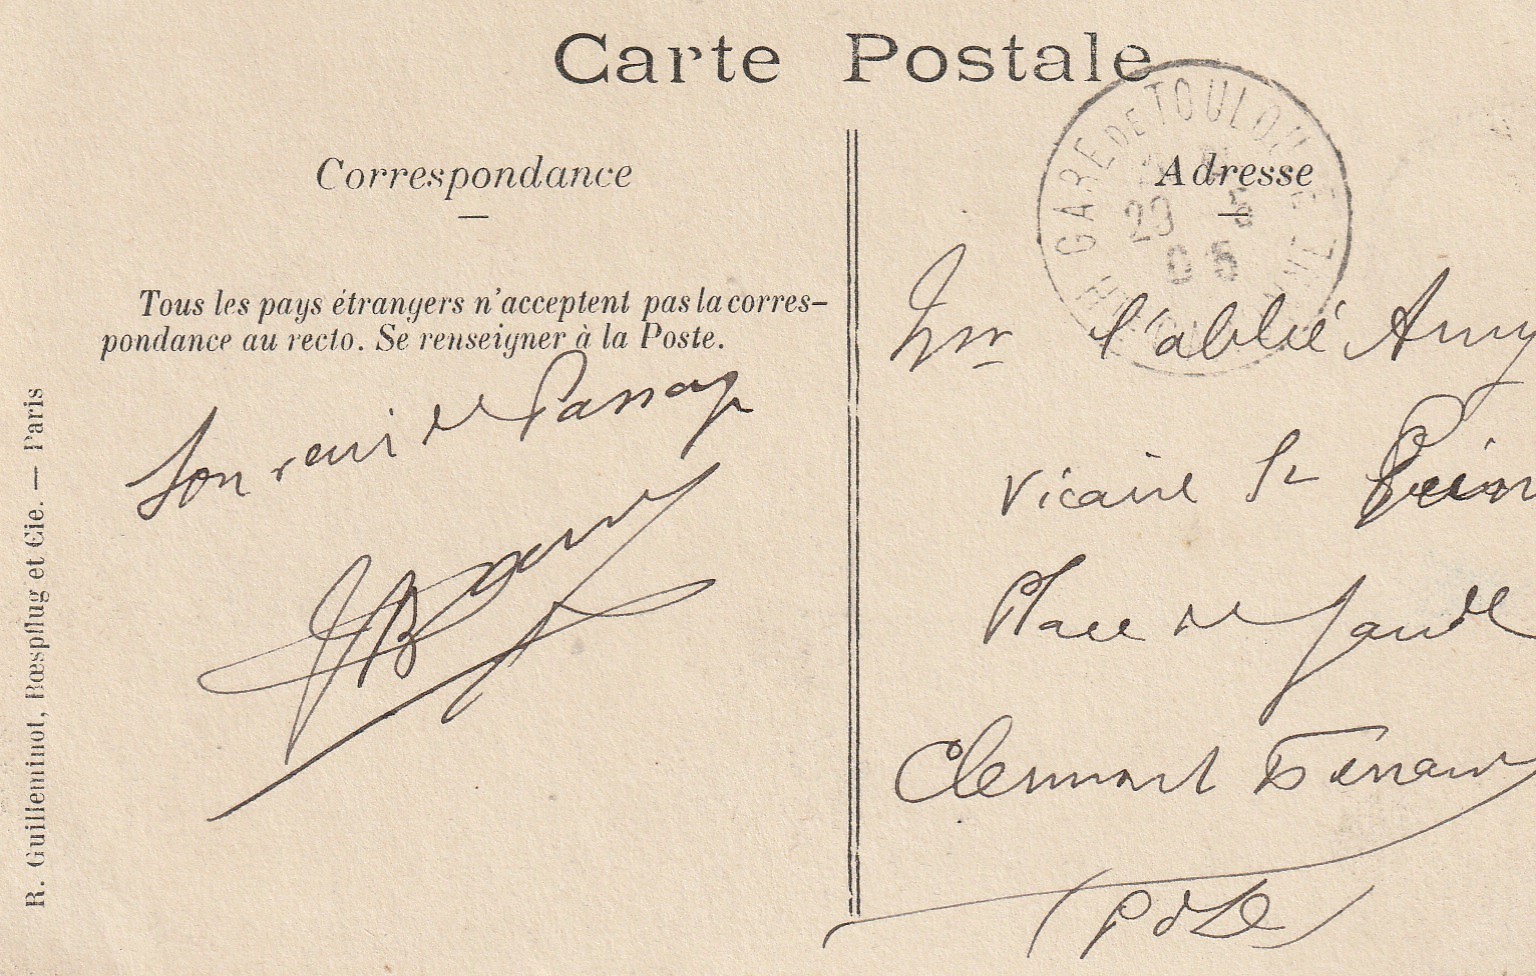 Carte Postale
Correspondance
Adresse
Tous les pays étrangers n'acceptent pas la corres-
pondance au recto. Se renseigner à la Poste.
Souvenir de Passage
R. Guilleminot, Bœspflug et Cie. — Paris
GARE DE TOULOUSE
29 5
05
Mr l'abbé Amy
Vicaire St
Place de Jaude
Clermont Ferrand
(P de D)